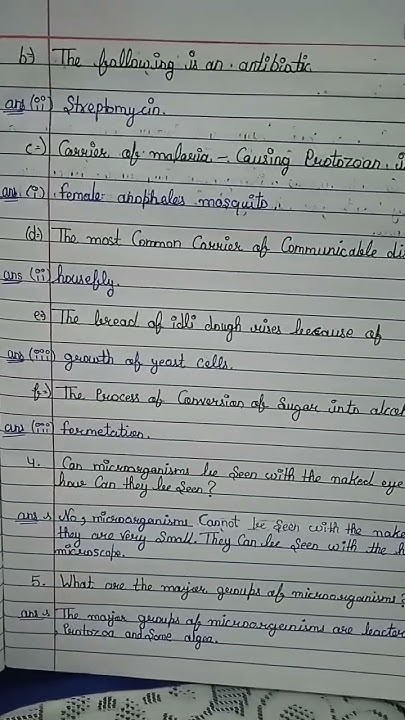 b) The following is an antibiotic
ans (ii) Streptomycin.
c) Carrier of malaria - Causing Protozoan
ans. (i) female anopheles mosquito.
(d) The most Common Carrier of Communicable
ans (ii) housefly.
e) The bread of idli dough rises because of
ans (iii) growth of yeast cells.
f) The Process of Conversion of Sugar into
ans (iii) formetation.
4. Can microorganisms be Seen with the naked eye
how Can they be Seen?
ans No, microorganisms Cannot be seen with the
they are very Small. They Can be Seen with the
microscope.
5. What are the major groups of microorganisms?
ans The major groups of microorganisms are
Protozoa and Some algea.